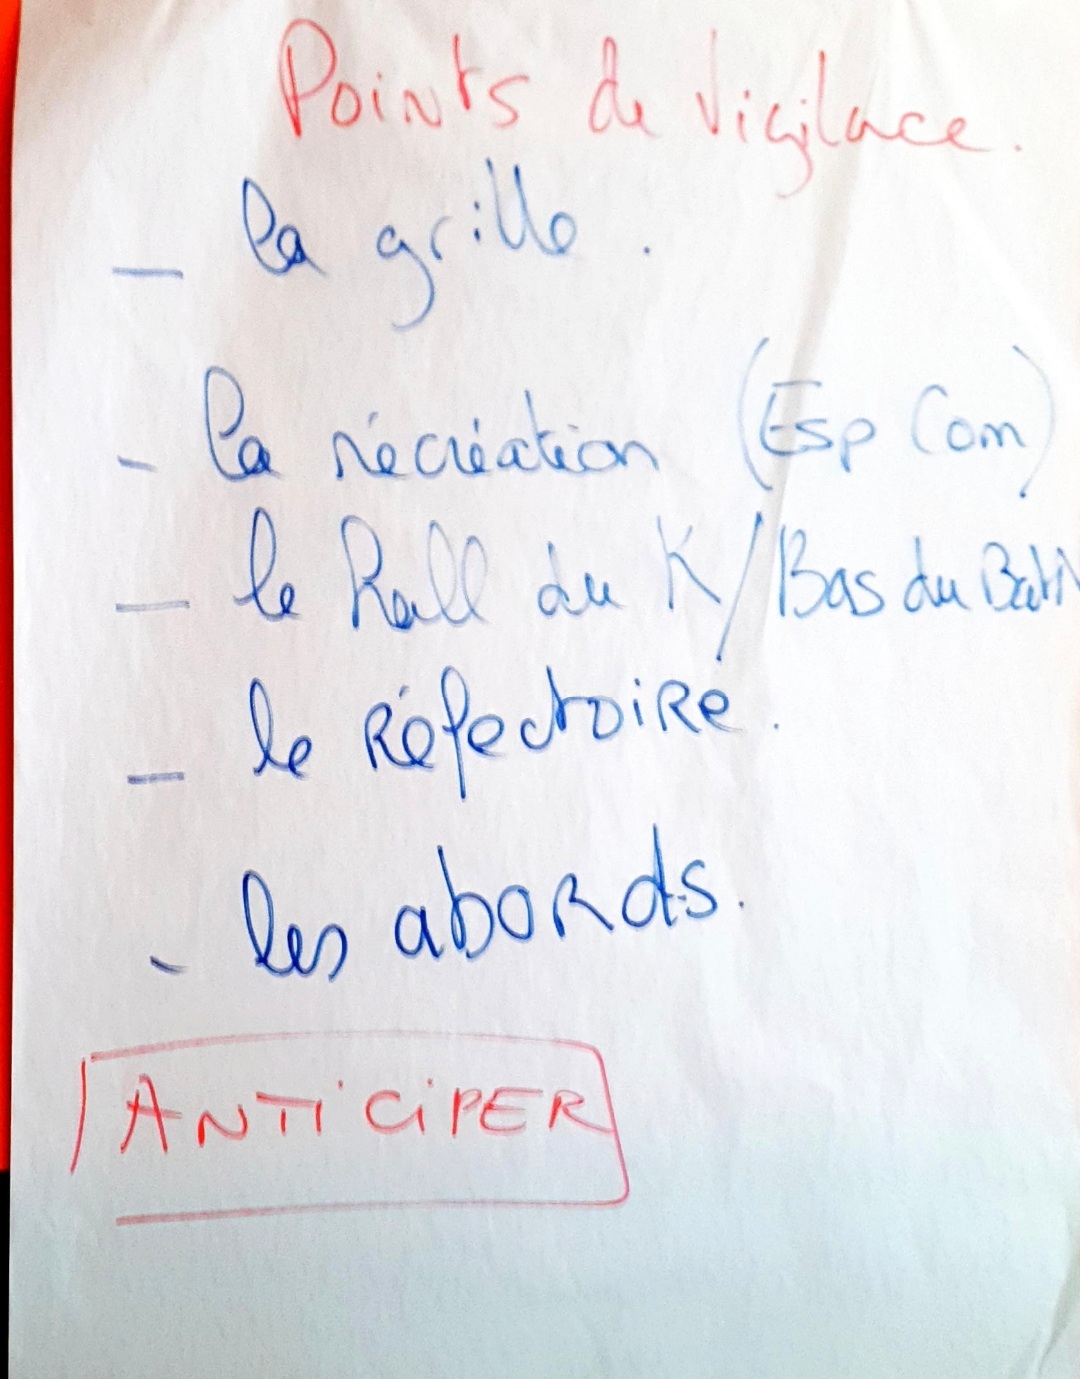 Points de Vigilace.
- la grille.
- la récréation (Esp Com)
- le Hall du K/Bas du Bati
- le Réfectoire.
- les abords.
ANTiCiPER